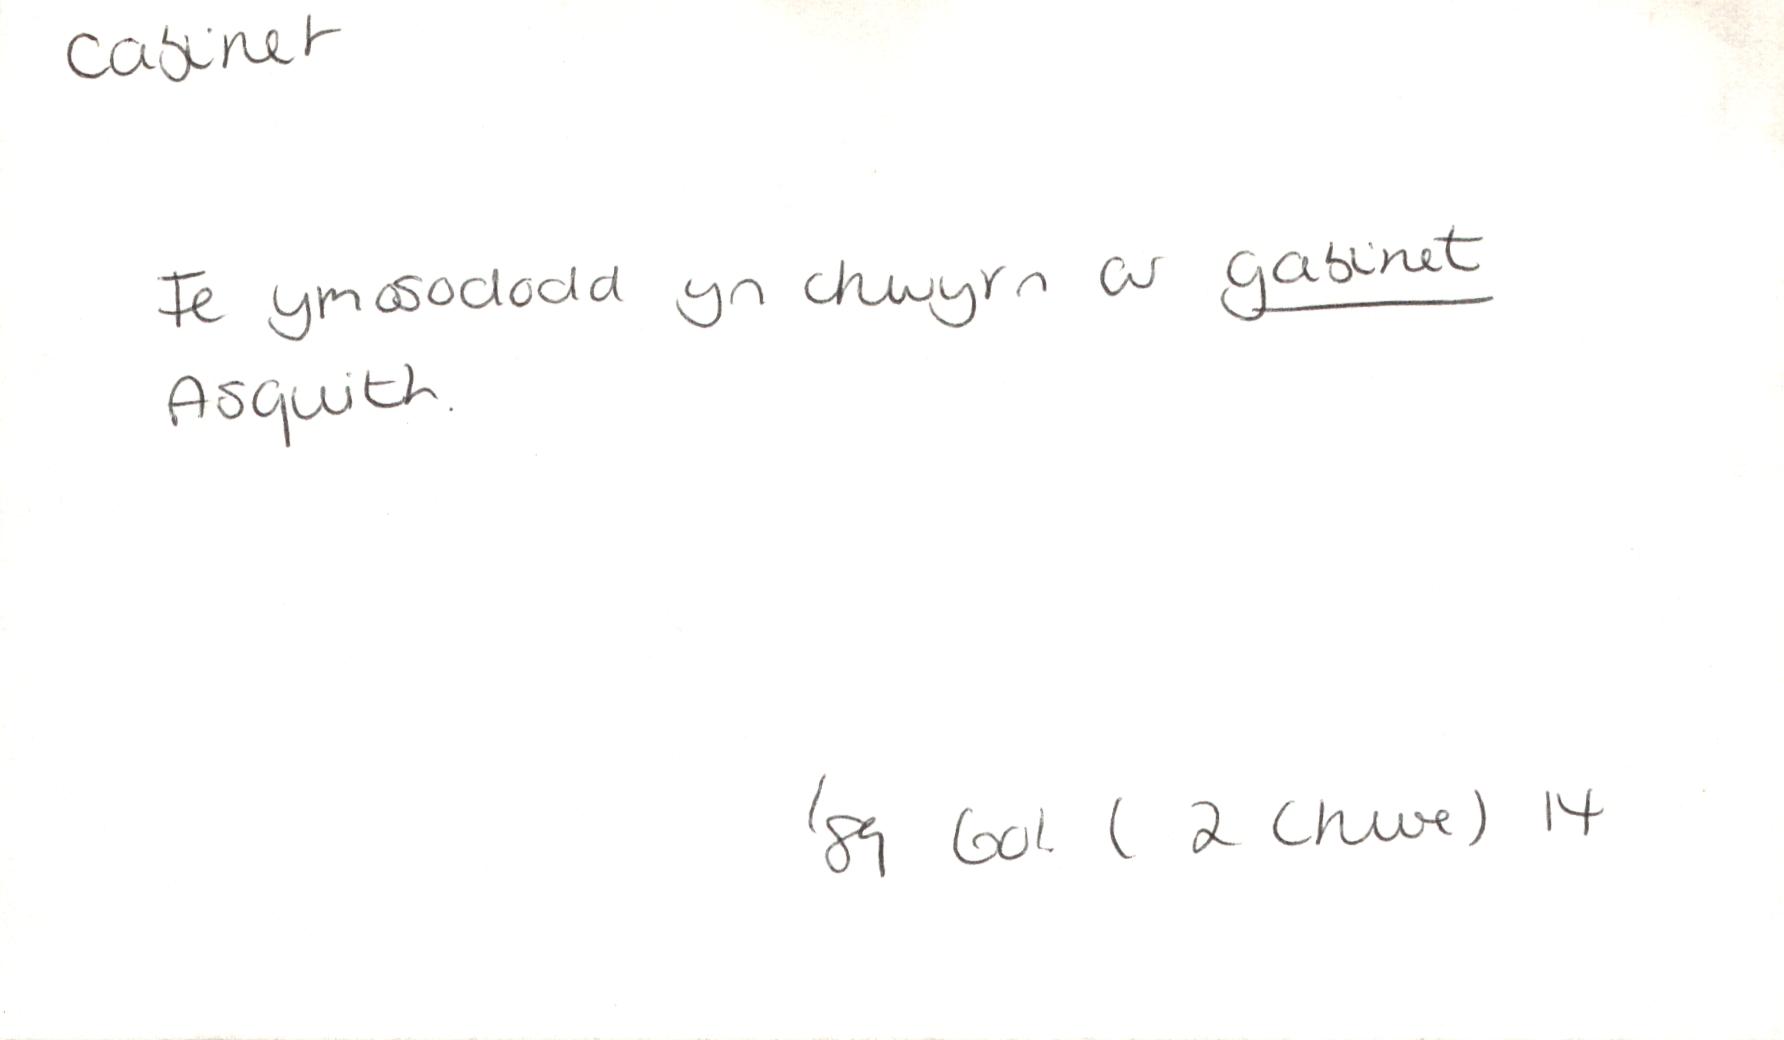 cabinet
Fe ymosododd yn chwyrn ar gabinet
Asquith.
'89 Gol. ( 2 Chwe) 14